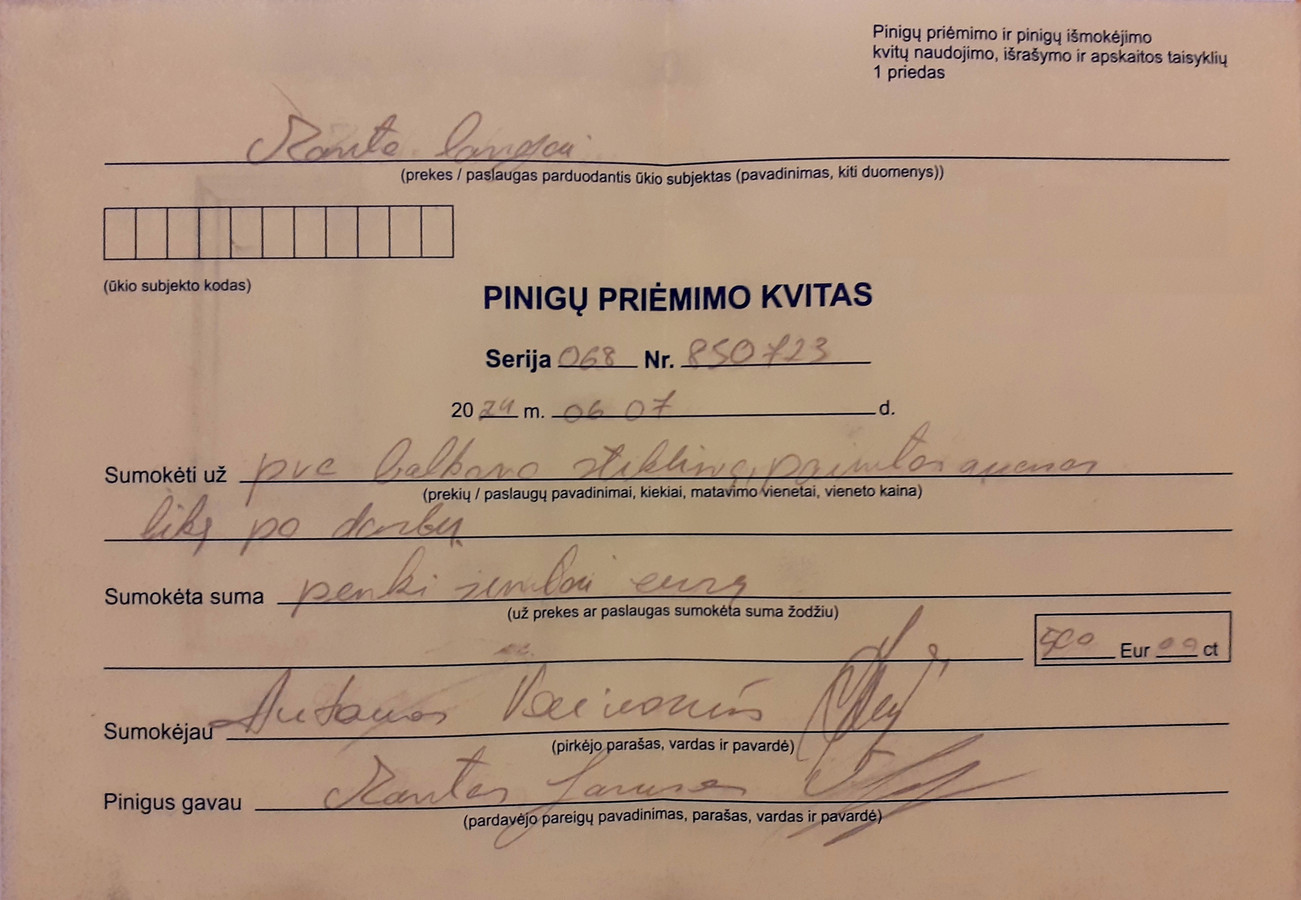 Pinigų priėmimo ir pinigų išmokėjimo
kvitų naudojimo, išrašymo ir apskaitos taisyklių
1 priedas
langai
(prekes / paslaugas parduodantis ūkio subjektas (pavadinimas, kiti duomenys))
(ūkio subjekto kodas)
PINIGŲ PRIĖMIMO KVITAS
Serija 068 Nr. 850723
20 24 m. 06 07 d.
Sumokėti už pvc balkono
(prekių / paslaugų pavadinimai, kiekiai, matavimo vienetai, vieneto kaina)
likę po darbų
Sumokėta suma penki šimtai eurų
(už prekes ar paslaugas sumokėta suma žodžiu)
500 Eur 00 ct
Sumokėjau Antanas
(pirkėjo parašas, vardas ir pavardė)
Pinigus gavau
(pardavėjo pareigų pavadinimas, parašas, vardas ir pavardė)